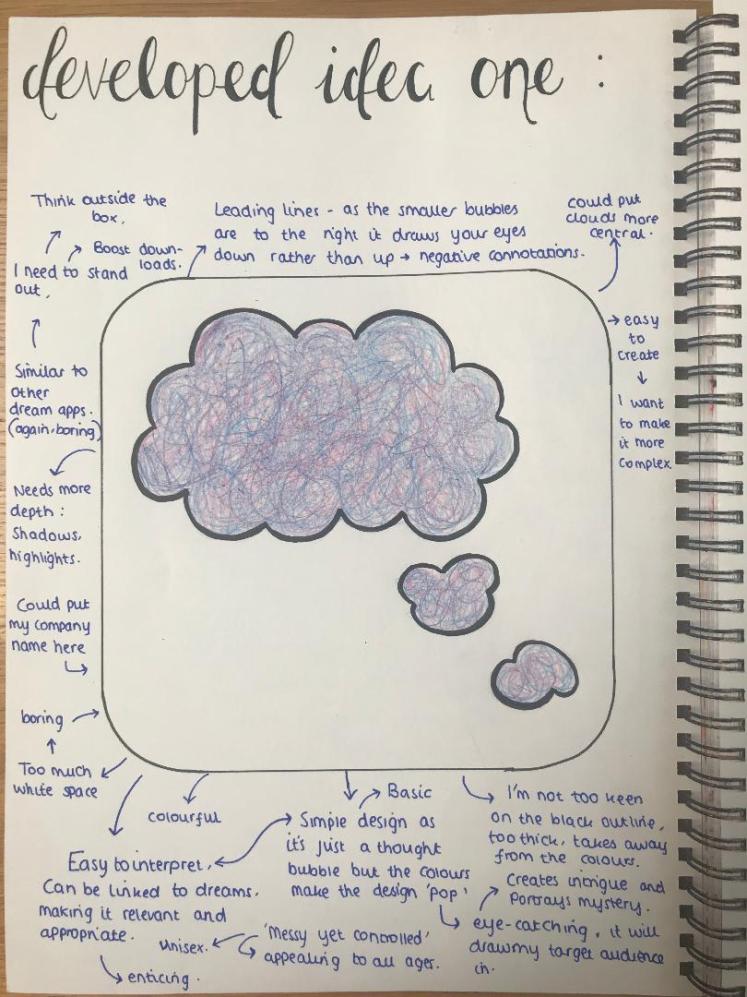 developed idea one :
Think outside the
box.
Boost down-
loads.
I need to stand
out.
Leading lines - as the smaller bubbles
are to the right it draws your eyes
down rather than up → negative connotations.
could put
clouds more
central.
→ easy
to
create
I want
to make
it more
complex
Similar to
other
dream apps.
(again, boring)
Needs more
depth :
Shadows,
highlights.
Could put
my company
name here
boring
Too much
white space
colourful
Basic
Simple design as
it's just a thought
bubble but the colours
make the design 'pop'
I'm not too keen
on the black outline,
too thick, takes away
from the colours.
Easy to interpret.
Can be linked to dreams.
making it relevant and
appropriate.
enticing.
Unisex.
'Messy yet controlled'
appealing to all ages.
Creates intrigue and
Portrays mystery.
eye-catching, it will
draw my target audience
in.